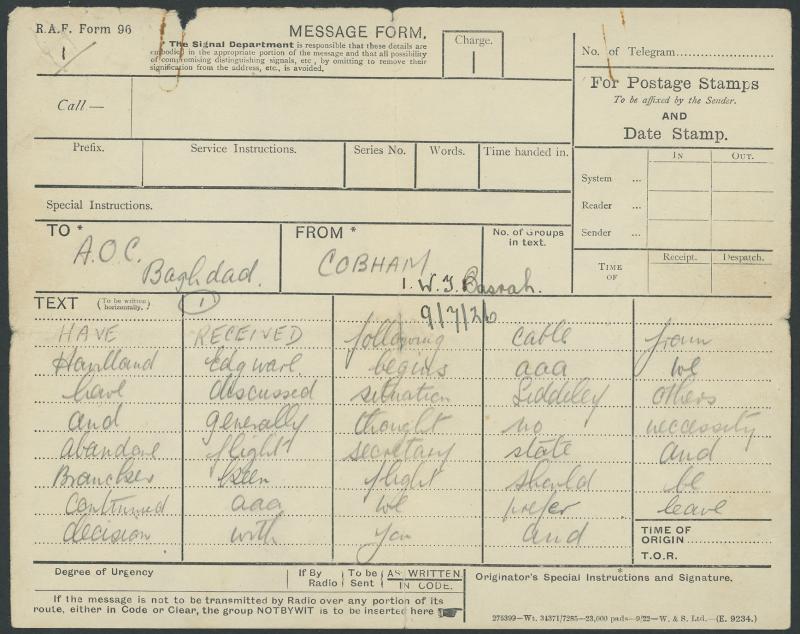 R.A.F. Form 96
1
MESSAGE FORM.
The Signal Department is responsible that these details are
embodied in the appropriate portion of the message and that all possibility
of compromising distinguishing signals, etc, by omitting to remove their
signification from the address, etc., is avoided.
Charge.
1
No. of Telegram
For Postage Stamps
To be affixed by the Sender.
AND
Date Stamp.
Call—
Prefix.
Service Instructions.
Series No.
Words.
Time handed in.
In
Out.
System ...
Reader ...
Sender ...
Special Instructions.
TO *
A.O.C.
Baghdad.
FROM *
COBHAM
1. W.T. Basrah.
No. of Groups
in text.
TIME
OF
Receipt.
Despatch.
TEXT (To be written horizontally.)
1
9/7/26
HAVE RECEIVED following cable from
Edgware begins aaa we
have discussed situation Siddeley others
and generally thought no necessity
abandone flight secretary state and
Brancker keen flight should be
continued aaa we prefer leave
decision with you and
TIME OF
ORIGIN
T.O.R.
Degree of Urgency
If By
Radio
To be
Sent
AS WRITTEN
IN CODE.
Originator's Special Instructions and Signature.
If the message is not to be transmitted by Radio over any portion of its
route, either in Code or Clear, the group NOTBYWIT is to be inserted here
276399—Wt. 34371/7285—23,000 pads—9/22—W. & S. Ltd.—(E. 9234.)